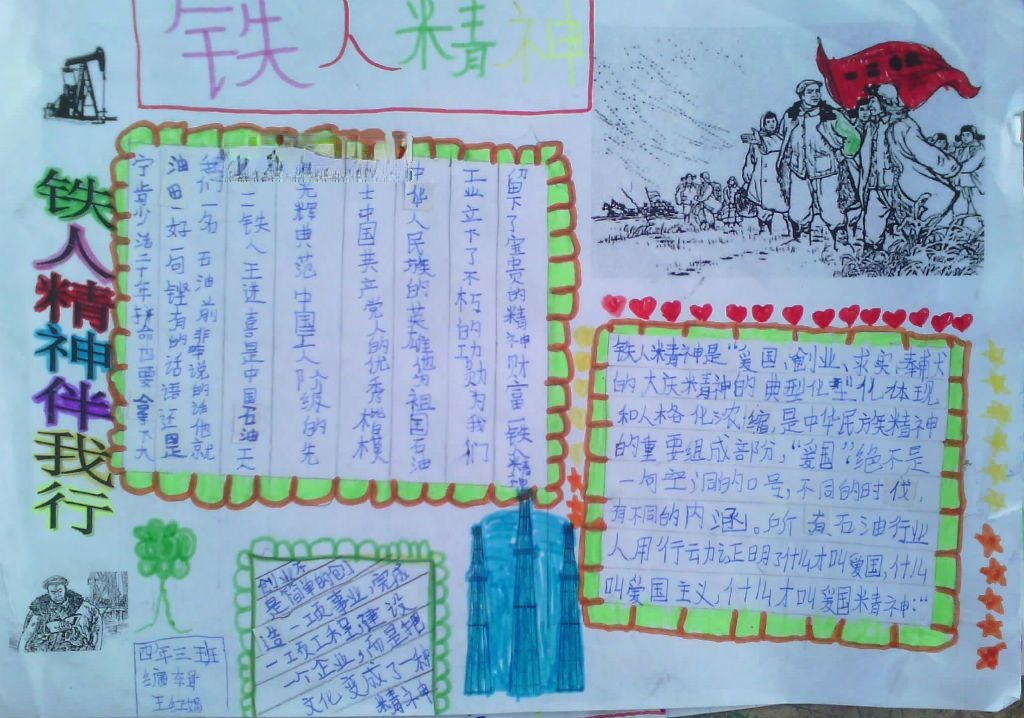 铁人精神
铁人精神伴我行
宁肯少活二十年拼命四要拿下大
油田 好一句铿有的话语还是
一名石油前非常说的话他就
一铁人王进喜是中国石油工
光辉典范 中国工人阶级的先
士中国共产党人的优秀楷模
中华人民族的英雄他为祖国石油
工业立下了不朽的功勋为我们
留下了宝贵的精神财富一铁人精神
铁人精神是“爱国、创业、求实、奉献
的大庆精神的典型化型化体现
和人格化浓缩,是中华民族精神
的重要组成部分,“爱国“绝不是
一句空洞的口号,不同的时代,
有不同的内涵。所有石油行业
人用行云力让正明了什么才叫爱国,什么
叫爱国主义,什么才叫爱国精神:“
创业不
是简单的创
造一项事业,完成
一项工程建设
一个企业,而是把
文化变成了一种
精神
四年三班
编辑
王红娟